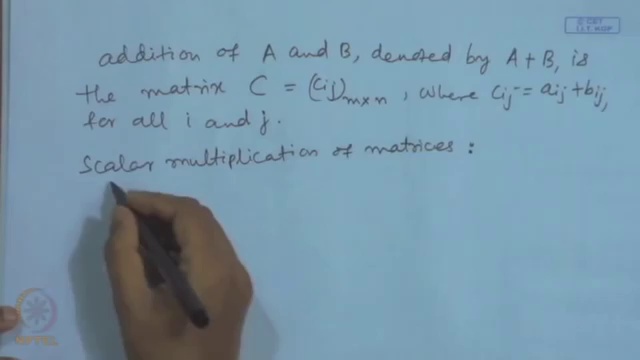 © CET
I.I.T. KGP
addition of A and B, denoted by A + B, is
the matrix C = (cij)m×n, where cij = aij + bij,
for all i and j.
Scalar multiplication of matrices :
NPTEL